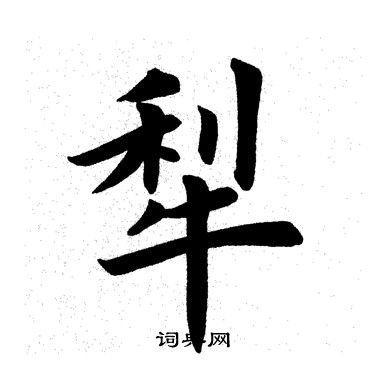 犁
词典网